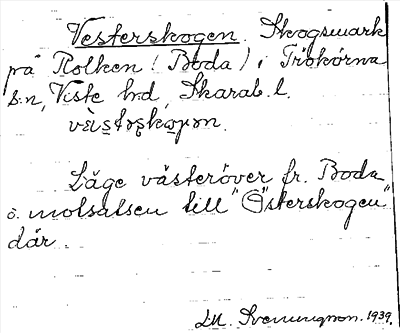 Vesterskogen. Skogsmark
på Kolken (Boda) i Trökörna
s:n, Viste hd, Skarab. l.
Läge västeröver fr. Boda
o. motsatsen till "Österskogen"
där.
Sveningson. 1939.